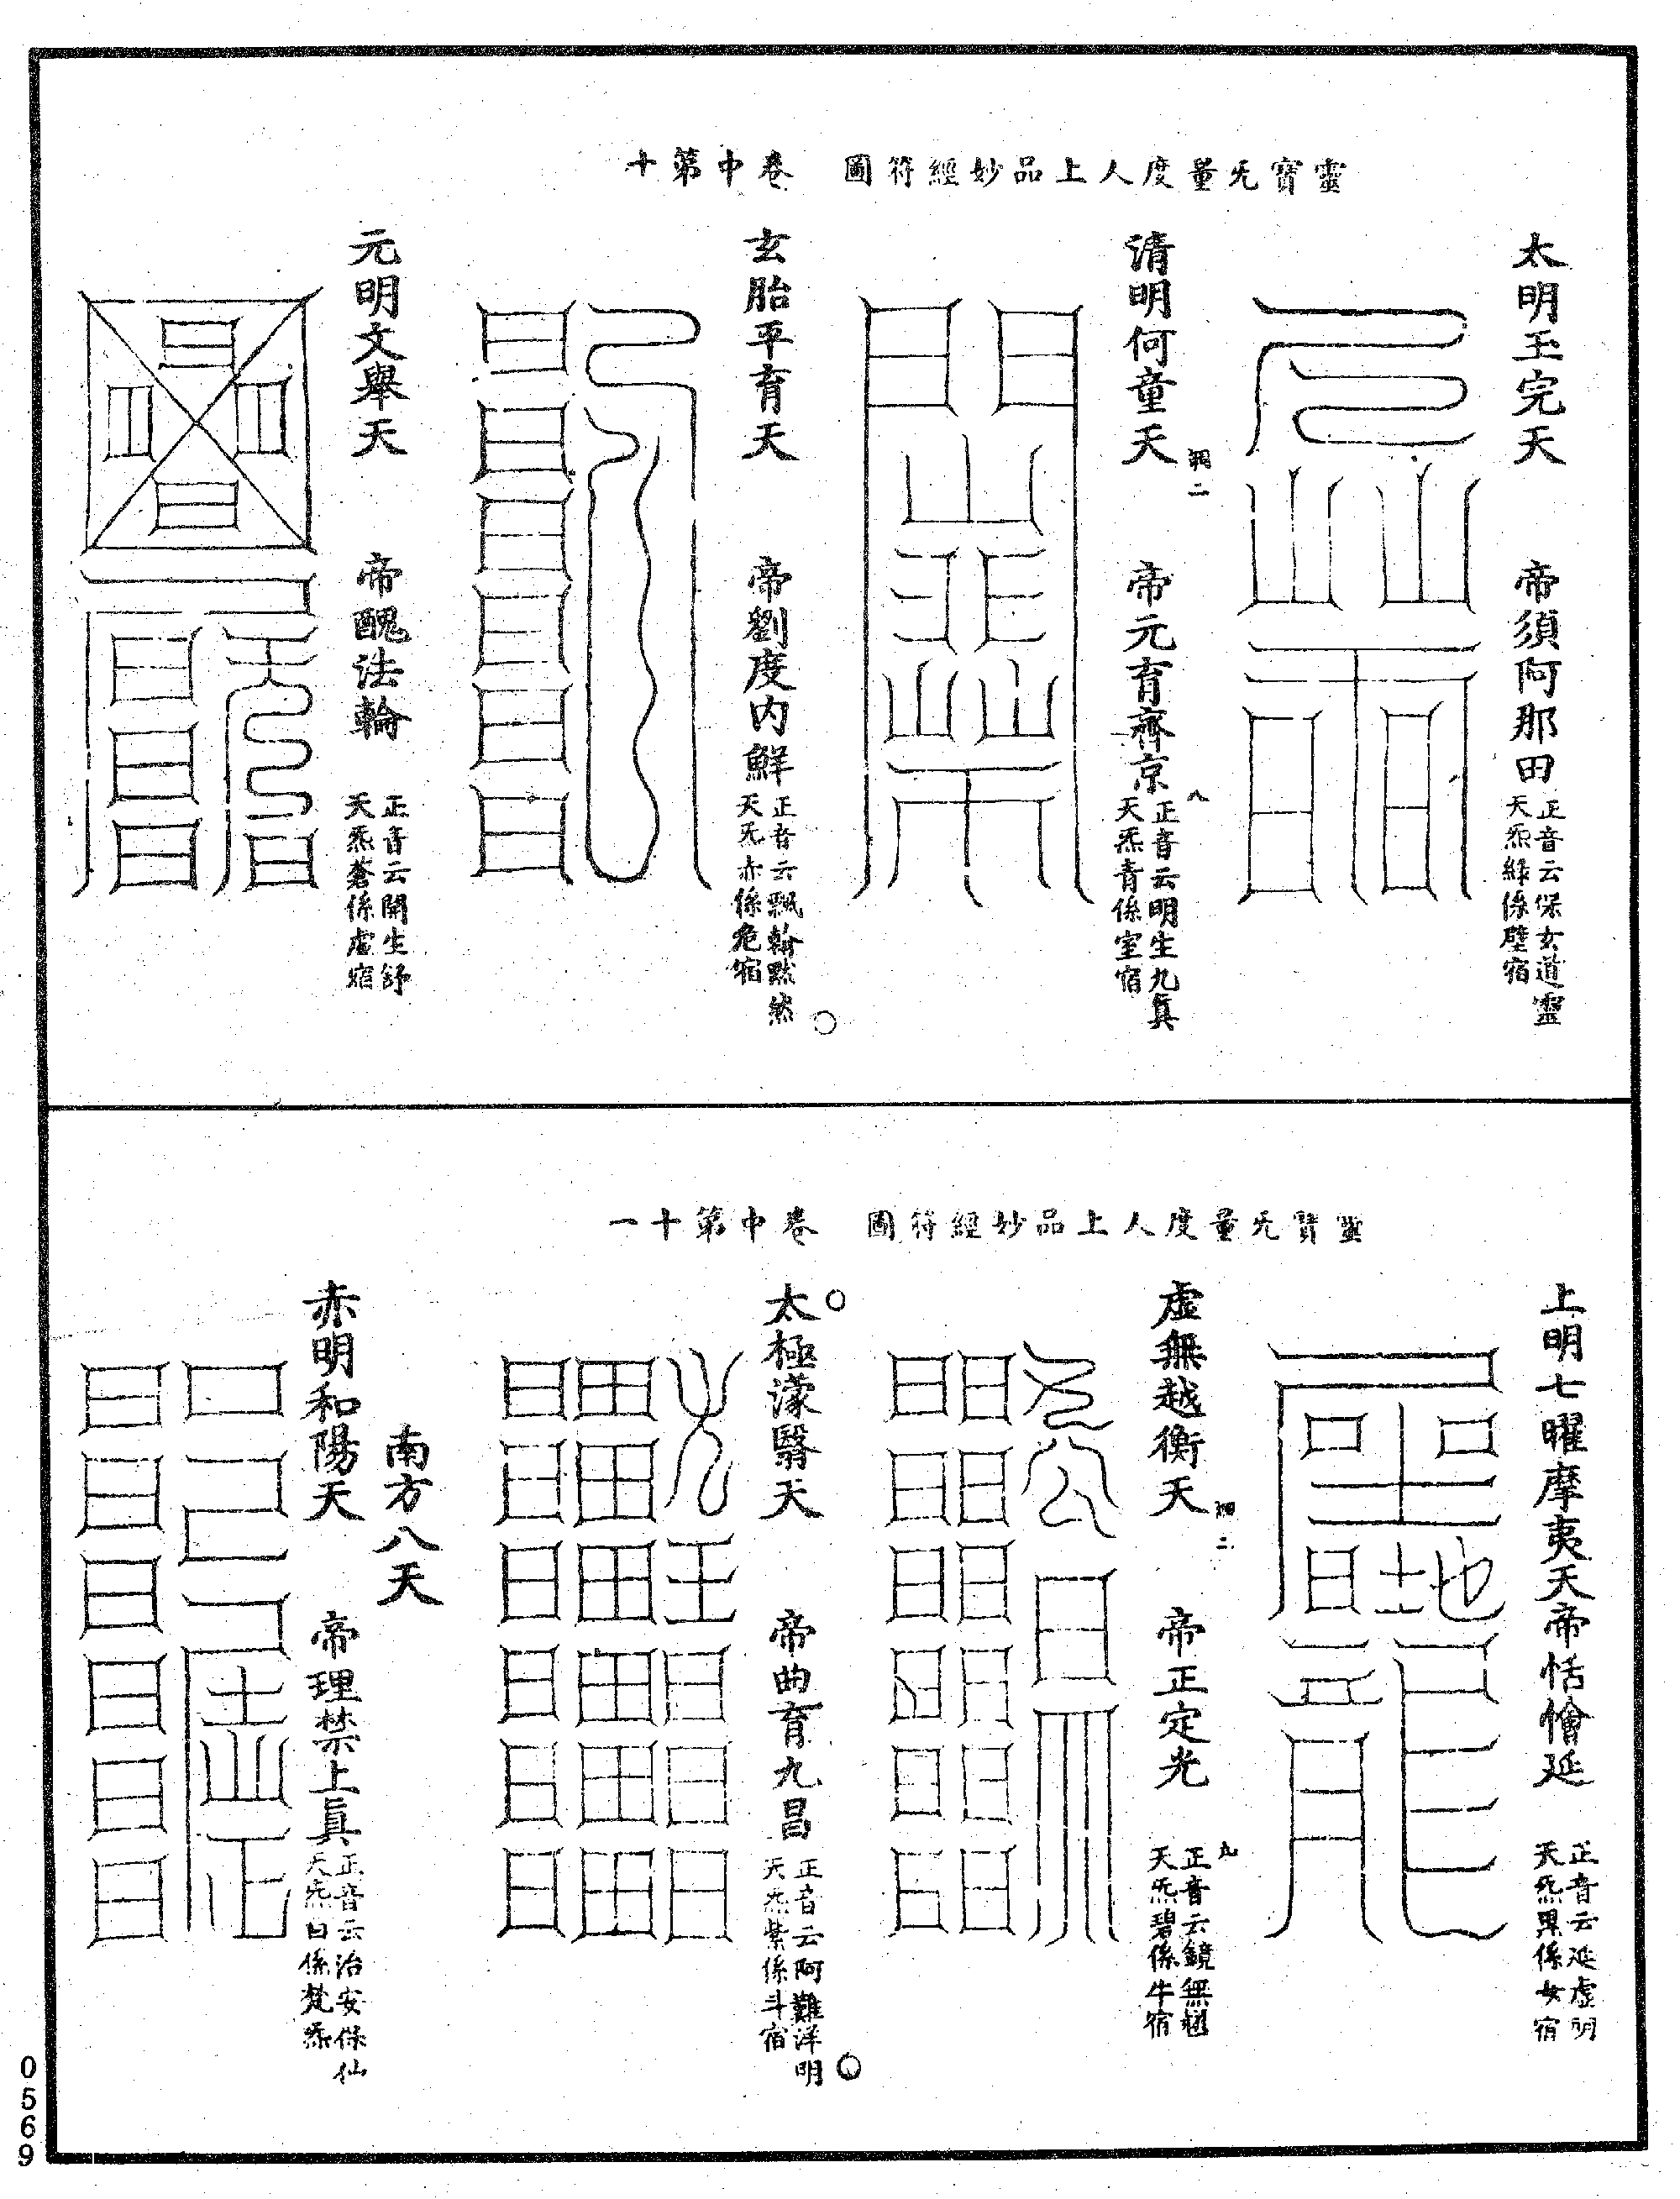 靈寶无量度人上品妙經符圖　卷中第十
太明玉完天　帝須阿那田
正音云保玄道靈
天炁綠係壁宿
洞二
八
清明何童天　帝元育齊京
正音云明生九眞
天炁青係室宿
玄胎平育天　帝劉度内鮮
正音云飄輪黙然
天炁赤係危宿
元明文舉天　帝醜法輪
正音云開生舒
天炁蒼係虛宿
靈寶无量度人上品妙經符圖　卷中第十一
上明七曜摩夷天帝恬憺延
正音云延虛明
天炁黑係女宿
洞二
九
虛無越衡天　帝正定光
正音云鏡無
天炁碧係牛宿
太極濛翳天　帝曲育九昌
正音云阿難洋明
天炁紫係斗宿
南方八天
赤明和陽天　帝理禁上眞
正音云治安保仙
天炁白係梵炁
0569